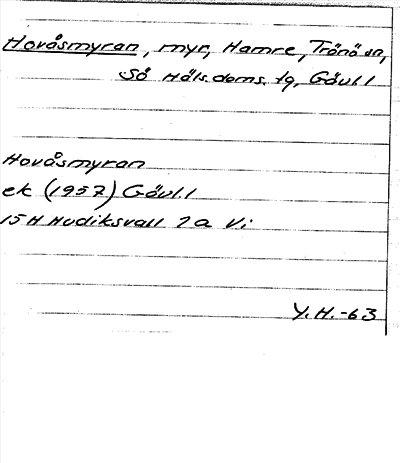 Hovåsmyran, myr, Hamre, Trönö sn,
Sö Häls. doms. lg, Gävl. l
Hovåsmyran
ek (1957) Gävl. l
15 H Hudiksvall 7 a Vi
Y. H. -63